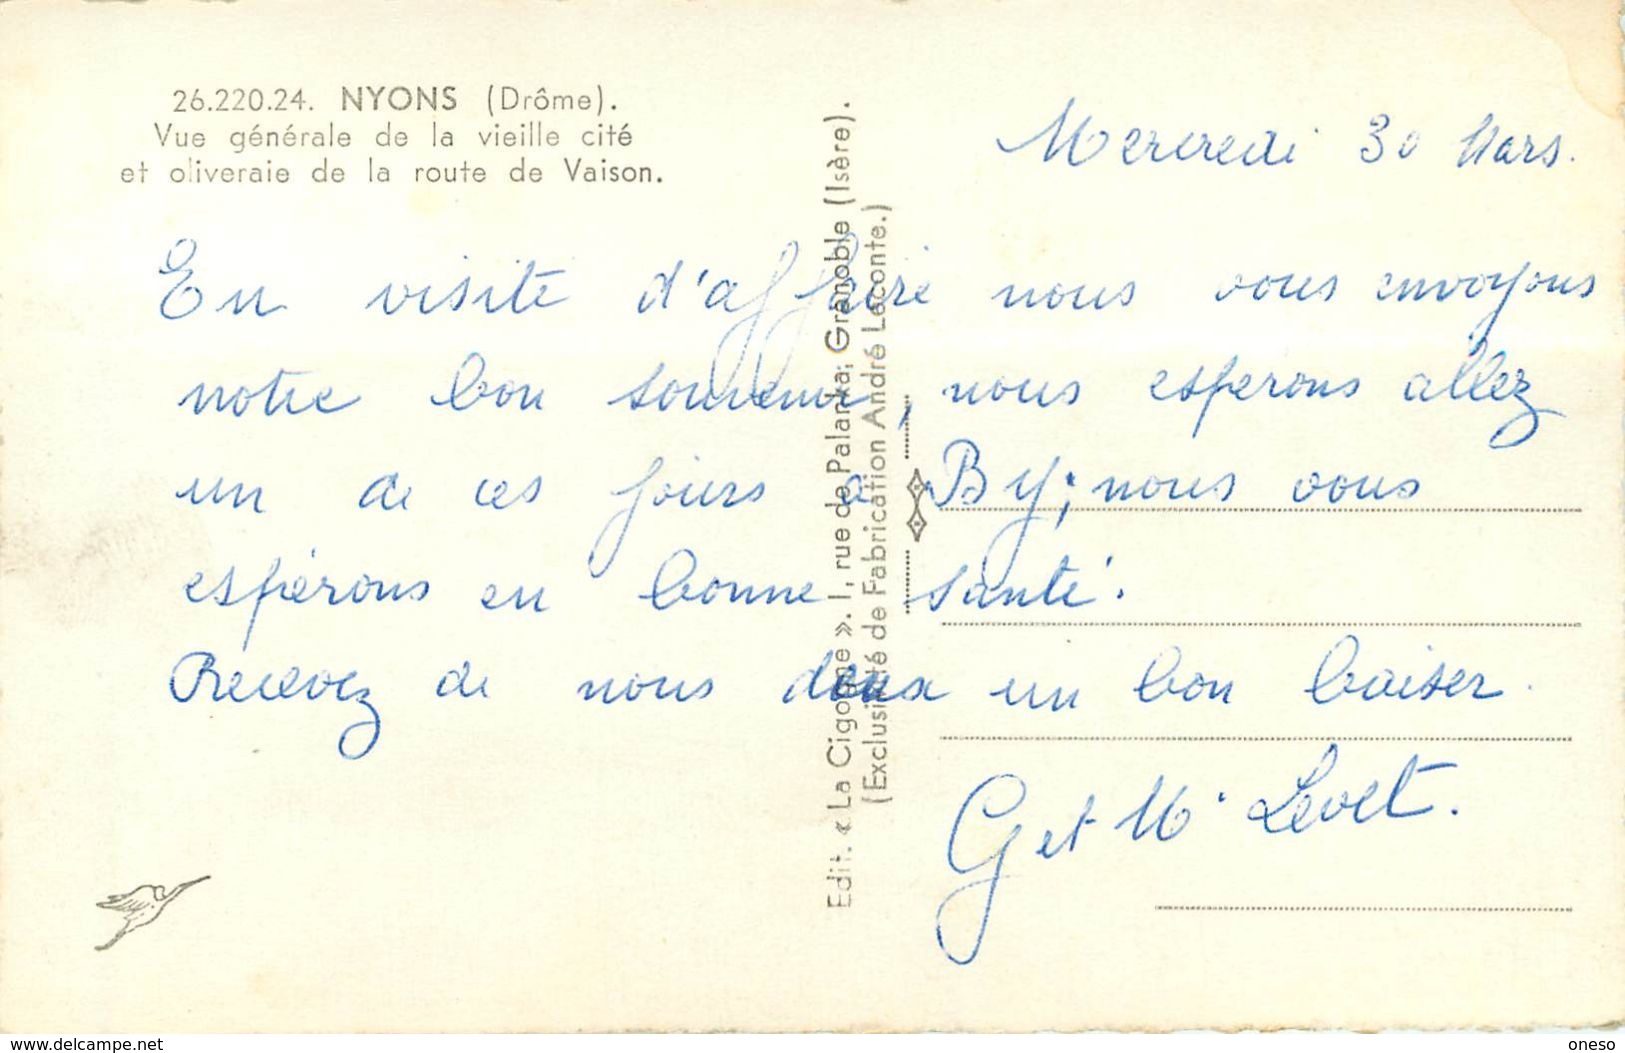 26.220.24. NYONS (Drôme).
Vue générale de la vieille cité
et oliveraie de la route de Vaison.
Mercredi 30 Mars.
En visite d'affaire nous vous envoyons
notre bon souvenir, nous esperons allez
un de ces jours à By; nous vous
espérons en bonne santé.
Recevez de nous deux un bon baiser.
G et M. Levet.
Edit. « La Cigogne ». 1, rue de Palanka, Grenoble (Isère).
(Exclusivité de Fabrication André Leconte.)
www.delcampe.net
oneso